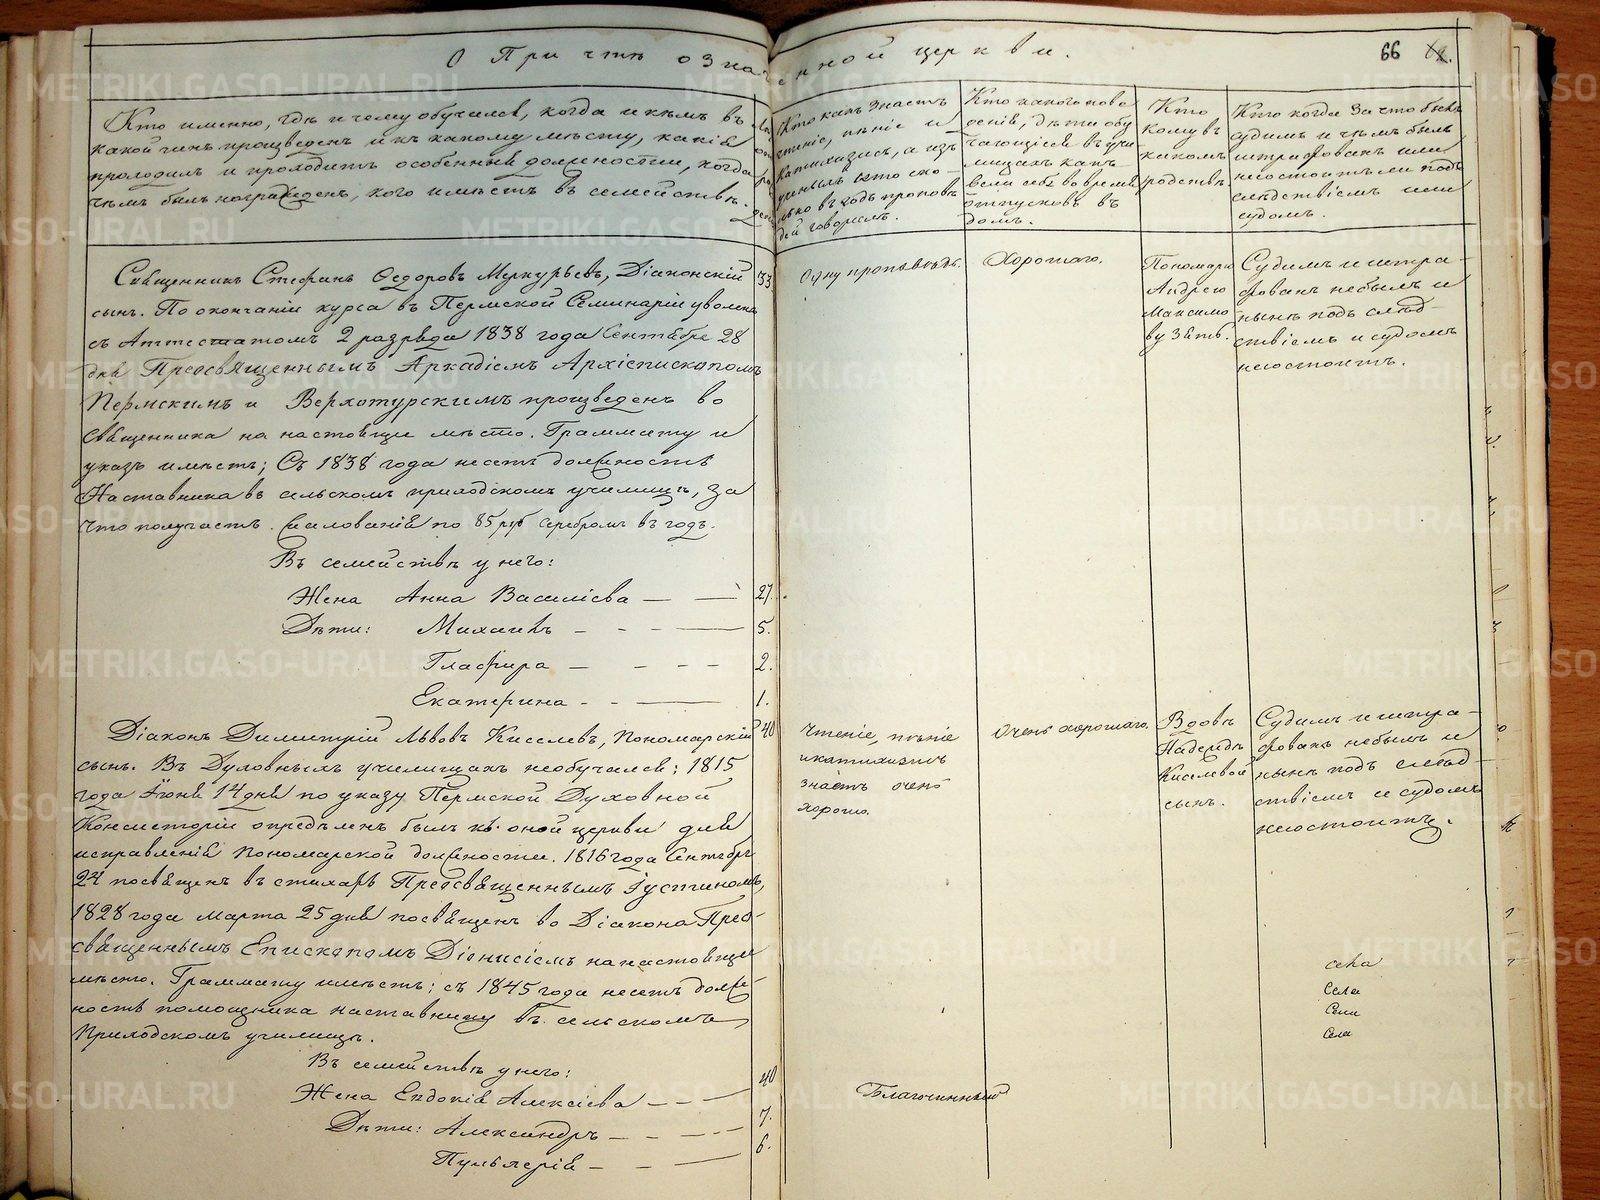 О Причтѣ означенной церкви.
66
Кто именно, гдѣ и чему обучался, когда и кѣмъ въ
какой чинъ произведенъ и къ какому мѣсту, какія
проходилъ и проходитъ особенныя должности, когда
чѣмъ былъ награжденъ, кого имѣетъ въ семействѣ.
Кто какъ знаетъ
чтеніе, пѣніе и
катихизисъ, а изъ
ученыхъ кто ско-
лько въ годъ проповѣ
дей говорилъ.
Кто какого пове
денія, дѣти обу
чающіеся въ учи
лищахъ какъ
вели себя во время
отпусковъ въ
домъ.
Кто
кому въ
какомъ
родствѣ.
Кто когда за что былъ
судимъ и чѣмъ былъ
штрафованъ или
не состоитъ ли подъ
слѣдствіемъ или
судомъ.
Священникъ Стефанъ Ѳедоровъ Меркурьевъ, Діаконскій 33
сынъ. По окончаніи курса въ Пермской Семинаріи уволенъ
съ Аттестатомъ 2 разряда 1838 года Сентября 28
дня Преосвященнымъ Аркадіемъ Архіепископомъ
Пермскимъ и Верхотурскимъ произведенъ во
Священника на настоящее мѣсто. Граммату и
указъ имѣетъ; Съ 1838 года несетъ должность
Наставника въ сельскомъ приходскомъ училищѣ, за
что получаетъ жалованія по 85 руб серебромъ въ годъ.
Одну проповѣдь.
Хорошаго.
Пономарю
Андрею
Максимо
ву Зять.
Судимъ и штра-
фованъ небылъ и
нынѣ подъ слѣд-
ствіемъ и судомъ
несостоитъ.
Въ семействѣ у него:
Жена Анна Василіева — — 27.
Дѣти: Михаилъ - - - — 5.
Глафира — - - - 2.
Екатерина - - — 1.
Діаконъ Димитрій Львовъ Киселевъ, Пономарскій 40
сынъ. Въ Духовныхъ училищахъ необучался; 1815
года Іюня 14 дня по указу Пермской Духовной
Консисторіи опредѣленъ былъ къ оной церкви для
исправленія Пономарской должности. 1816 года Сентября
24 посвященъ въ стихарь Преосвященнымъ Іустиномъ,
1828 года Марта 25 дня посвященъ во Діакона Прео-
священнымъ Епископомъ Діонисіемъ на настоящее
мѣсто. Граммату имѣетъ; съ 1845 года несетъ долж-
ность помощника наставнику въ сельскомъ
Приходскомъ училищѣ.
Чтеніе, пѣніе
и катихизисъ
знаетъ очень
хорошо.
Очень хорошаго.
Вдовѣ
Надеждѣ
Киселевой
сынъ.
Судимъ и штра-
фованъ небылъ и
нынѣ подъ слѣд-
ствіемъ и судомъ
несостоитъ.
села
Села
Села
Села
Въ семействѣ у него:
Жена Евдокія Алексіева - - — 40
Дѣти: Александръ — - - - 7.
Пульхерія — - — 6.
Благочинный
METRIKI.GASO-URAL.RU